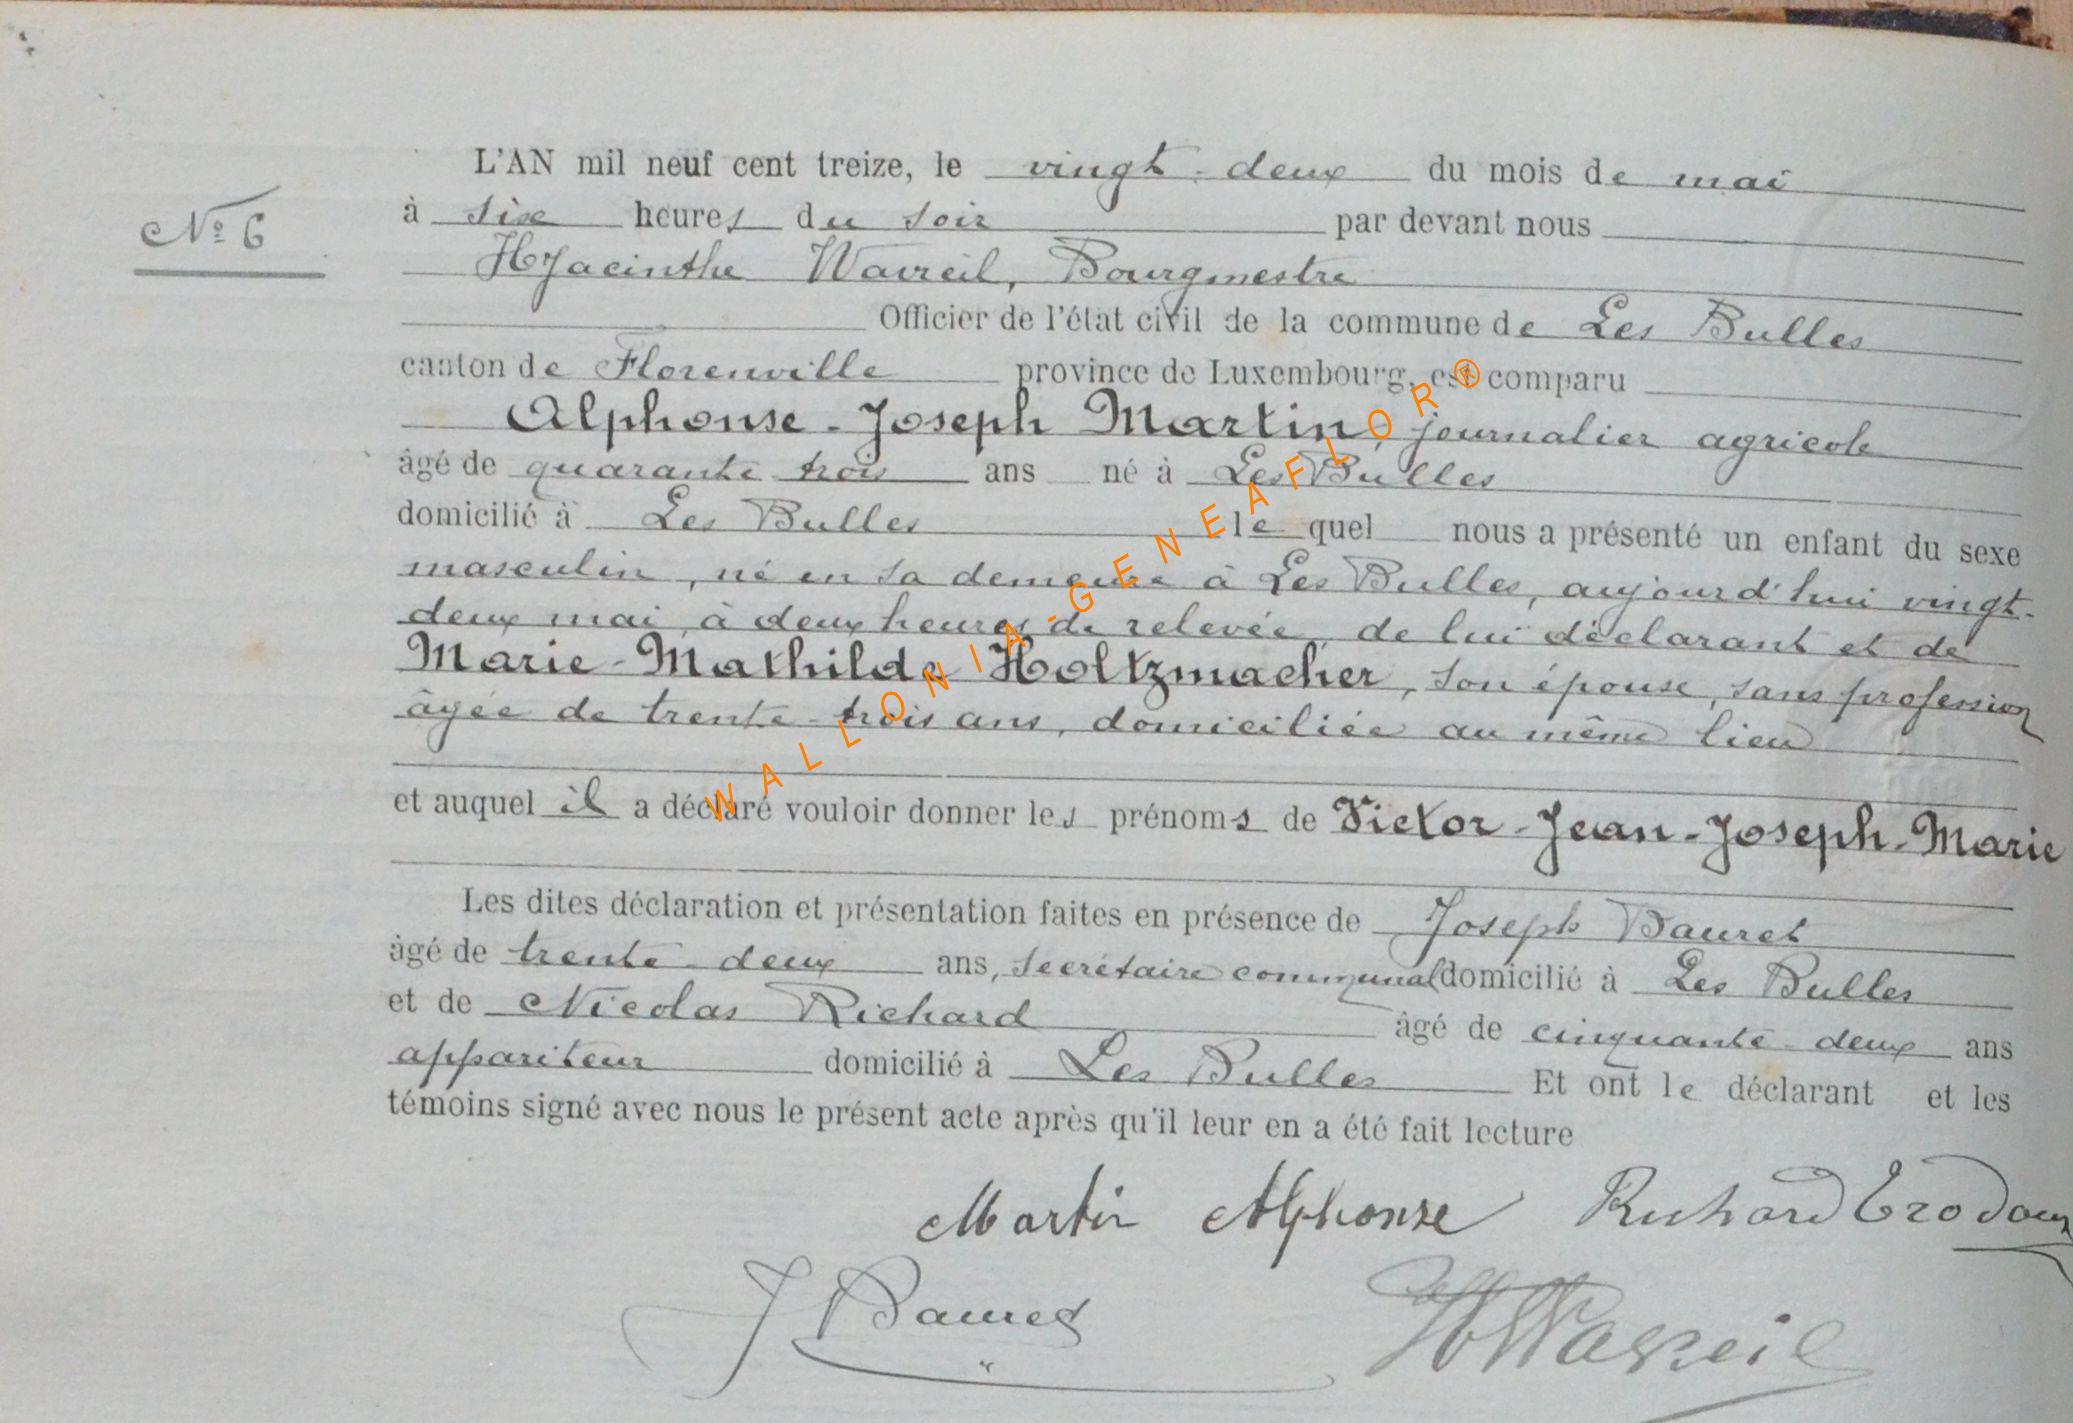 L'AN mil neuf cent treize, le vingt-deux du mois de mai
Nº 6
à six heures du soir par devant nous
Hyacinthe Wavreil, Bourgmestre
Officier de l'état civil de la commune de Les Bulles
canton de Florenville province de Luxembourg, est comparu
Alphonse-Joseph Martin, journalier agricole
âgé de quarante-trois ans né à Les Bulles
domicilié à Les Bulles lequel nous a présenté un enfant du sexe
masculin, né en sa demeure à Les Bulles, aujourd'hui vingt-
deux mai, à deux heures de relevée, de lui déclarant et de
Marie-Mathilde Holtzmacher, son épouse, sans profession
âgée de trente-trois ans, domiciliée au même lieu
et auquel il a déclaré vouloir donner les prénoms de Victor-Jean-Joseph-Marie
Les dites déclaration et présentation faites en présence de Joseph Bauret
âgé de trente-deux ans, secrétaire communal domicilié à Les Bulles
et de Nicolas Richard âgé de cinquante-deux ans
appariteur domicilié à Les Bulles Et ont le déclarant et les
témoins signé avec nous le présent acte après qu'il leur en a été fait lecture
Martin Alphonse Richard
J Bauret
HWavreil
WALLONIA-GENEAFLOR®